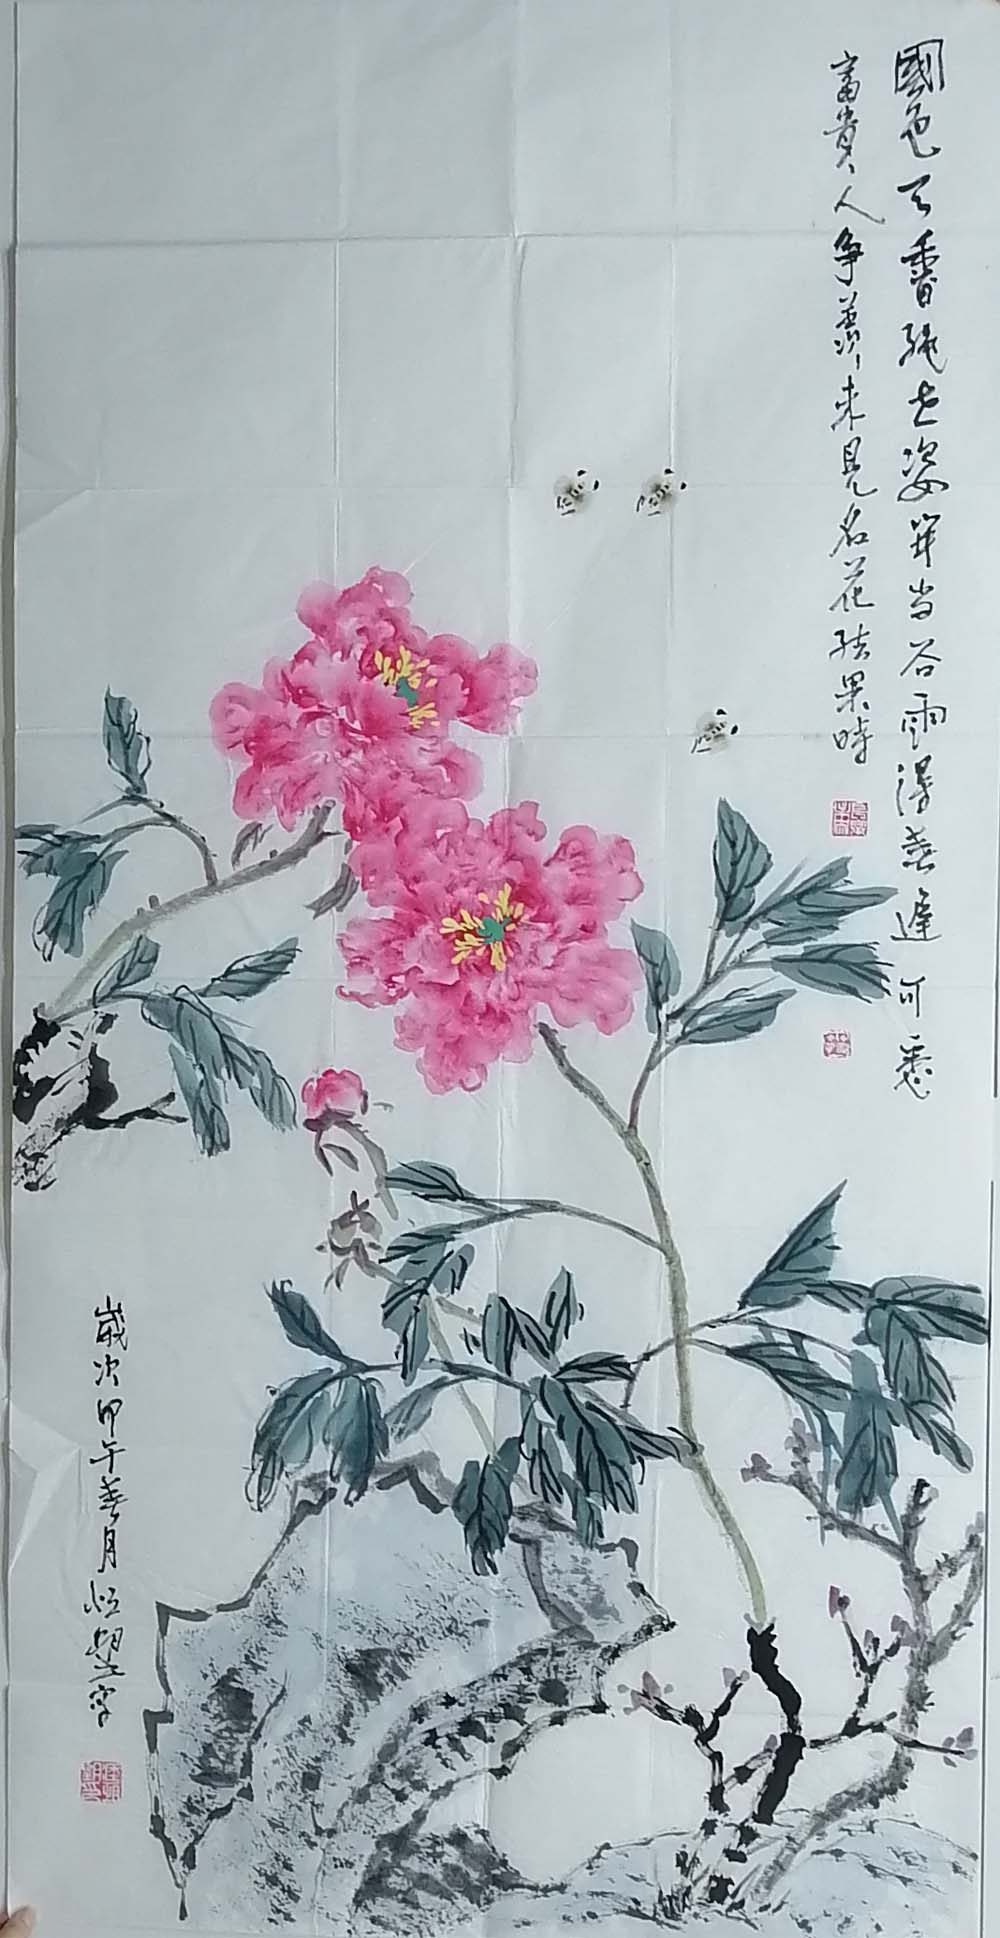 國色天香絕世姿開當谷雨得春遲可憐
富貴人爭羨未見名花結果時
歲次甲午春月